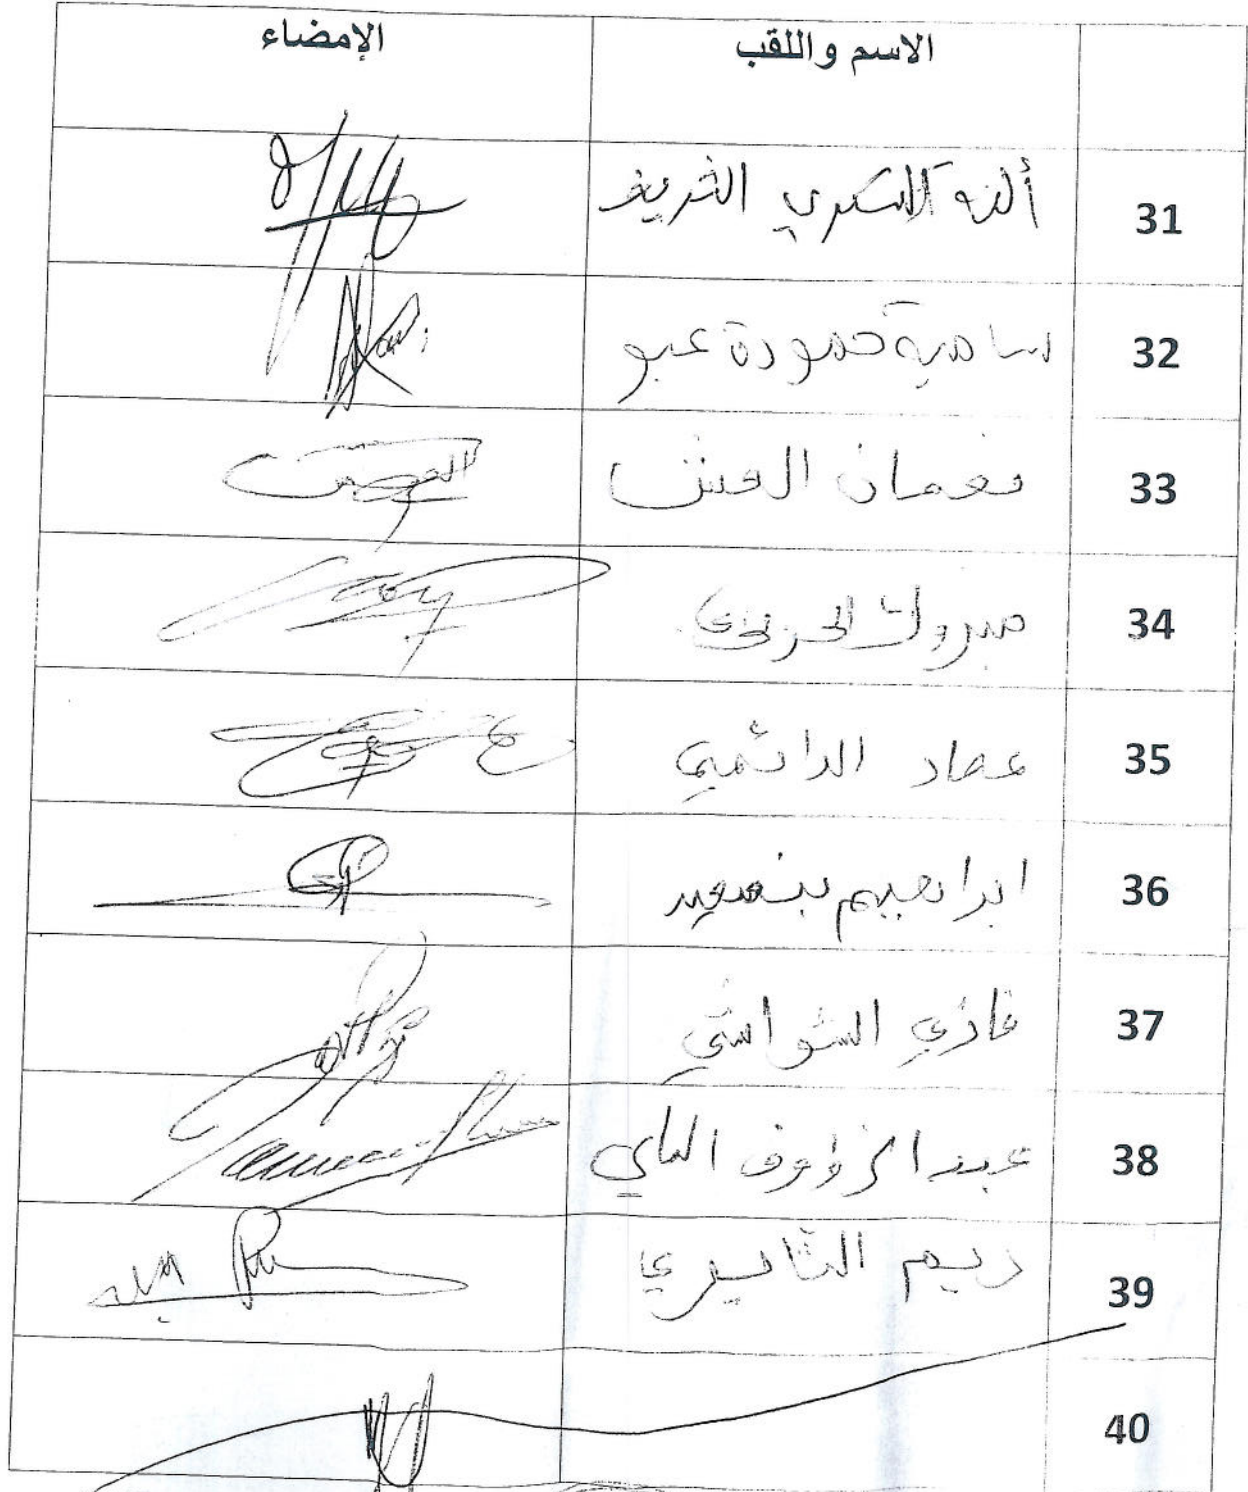 الاسم واللقب الإمضاء
31 ألفة السكري الشريف
32 سامية حمودة عبو
33 نعمان العش
34 مبروك الحريزي
35 عماد الدائمي
36 ابراهيم بنسعيد
37 غازي الشواشي
38 عبد الرؤوف الماي
39 ريم الثايري
40